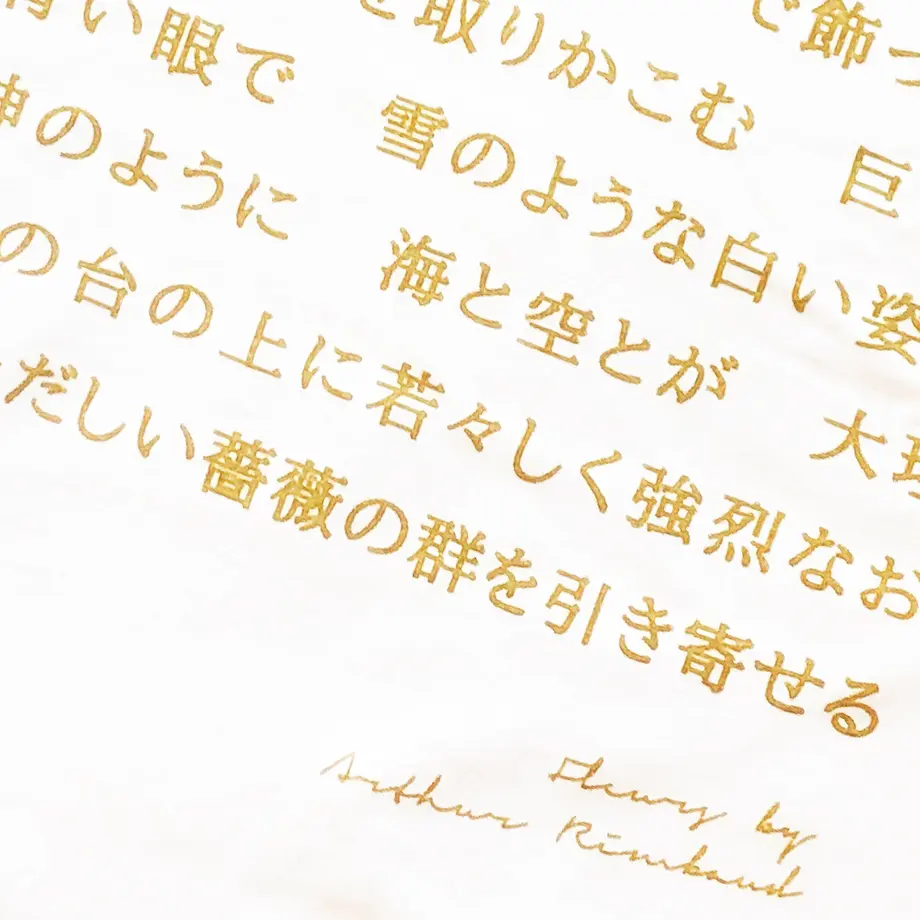 い眼で　を取りかこむ　で飾
神のように　雪のような白い姿
の台の上に　海と空とが　大
だしい薔薇の群を　若々しく強烈な
引き寄せる
Fleurs by
Arthur Rimbaud